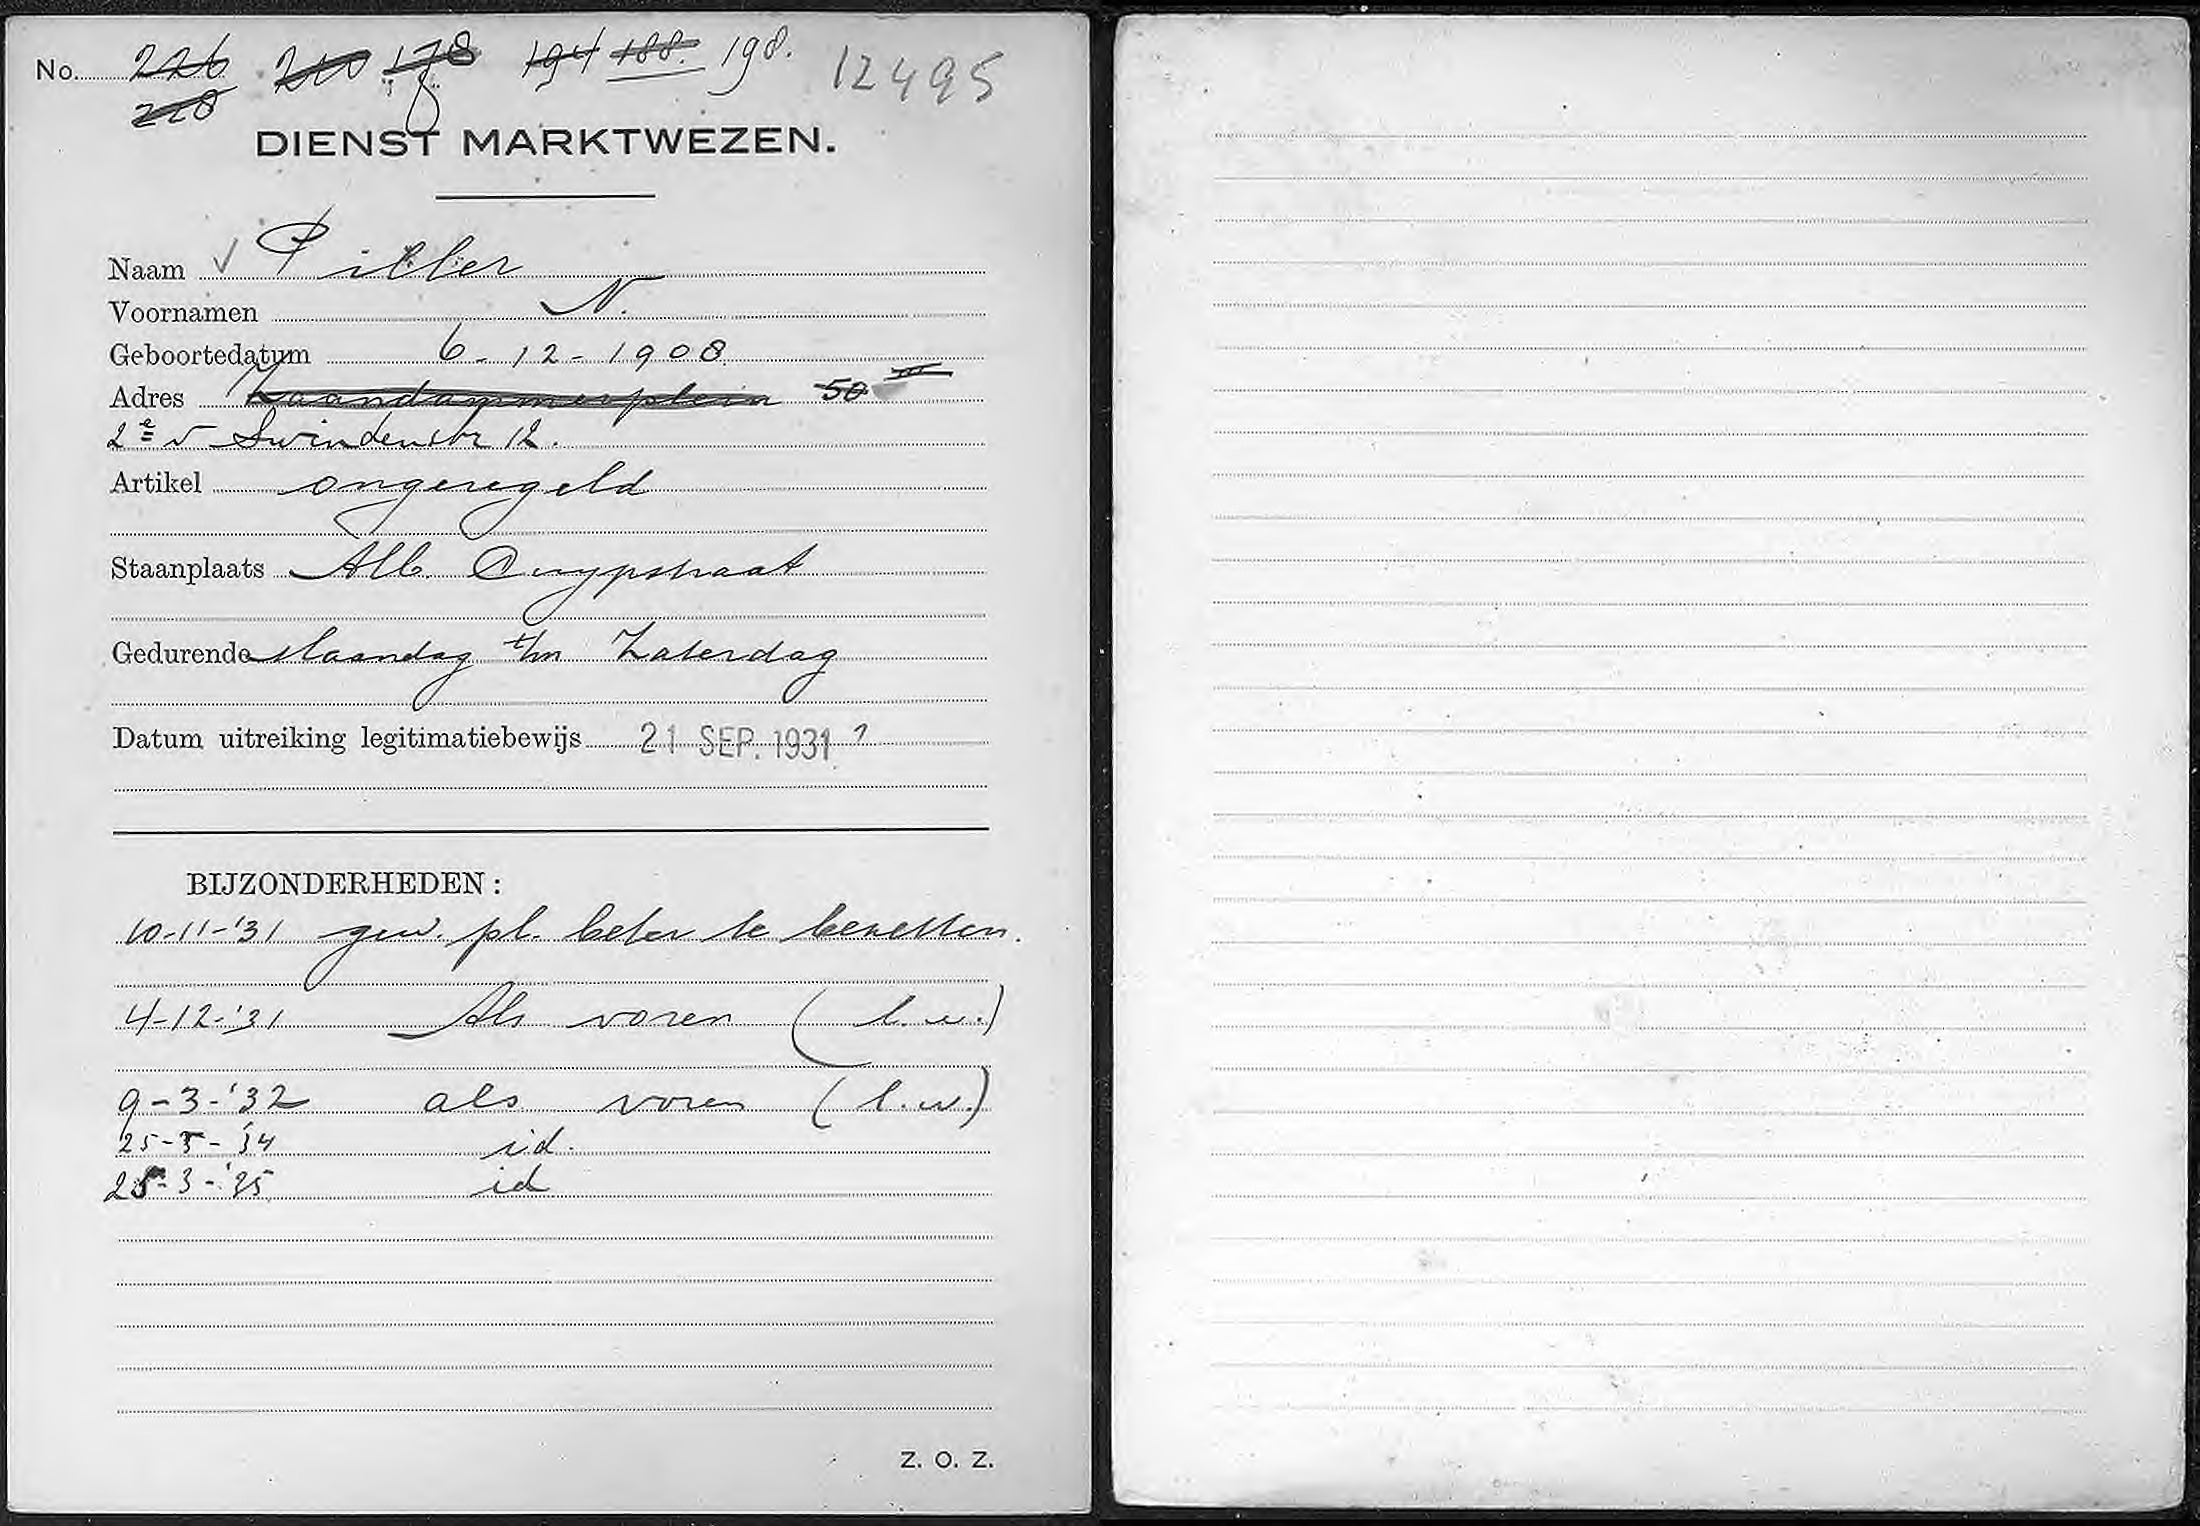 No. 226 210 178 194 188. 198. 12495
228
DIENST MARKTWEZEN.
Naam √ Piller
Voornamen N.
Geboortedatum 6-12-1908
Adres Zaandammerplein 50 III
2e v Swindenstr 12.
Artikel ongeregeld
Staanplaats Alb. Cuypstraat
Gedurende Maandag t/m Zaterdag
Datum uitreiking legitimatiebewijs 21 SEP. 1931 ?
BIJZONDERHEDEN:
10-11-'31 gew. pl. beter te bezetten.
4-12-'31 Als voren (l.w.)
9-3-'32 als voren (l.w.)
25-5-'34 id.
25-3-'35 id
Z. O. Z.